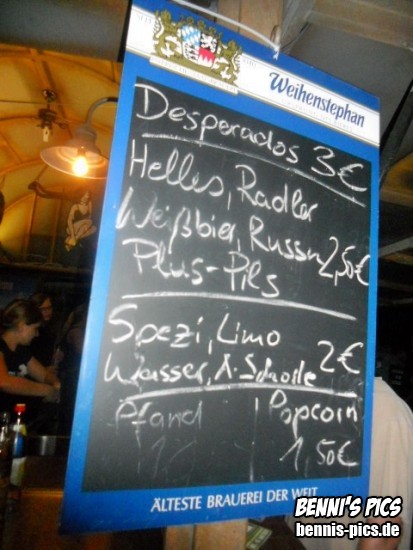 Weihenstephan
Desperados 3€
Helles, Radler
Weißbier, Russn 2,50€
Plus-Pils
Spezi, Limo
Wasser, A. Schorle 2€
Pfand Popcorn
1,50€
ÄLTESTE BRAUEREI DER WELT
BENNI'S PICS
bennis-pics.de